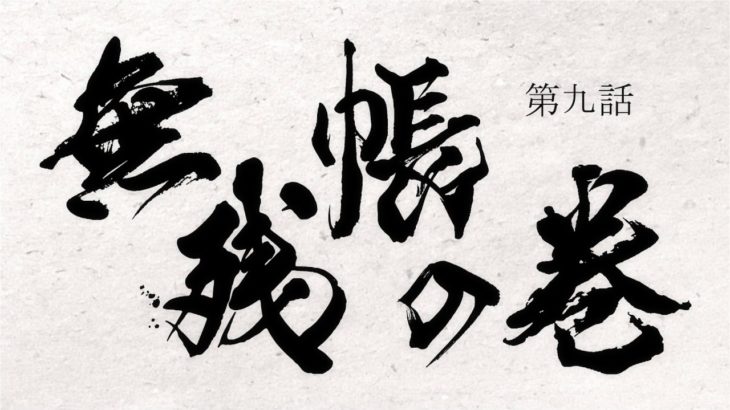 第九話
無残帳の巻